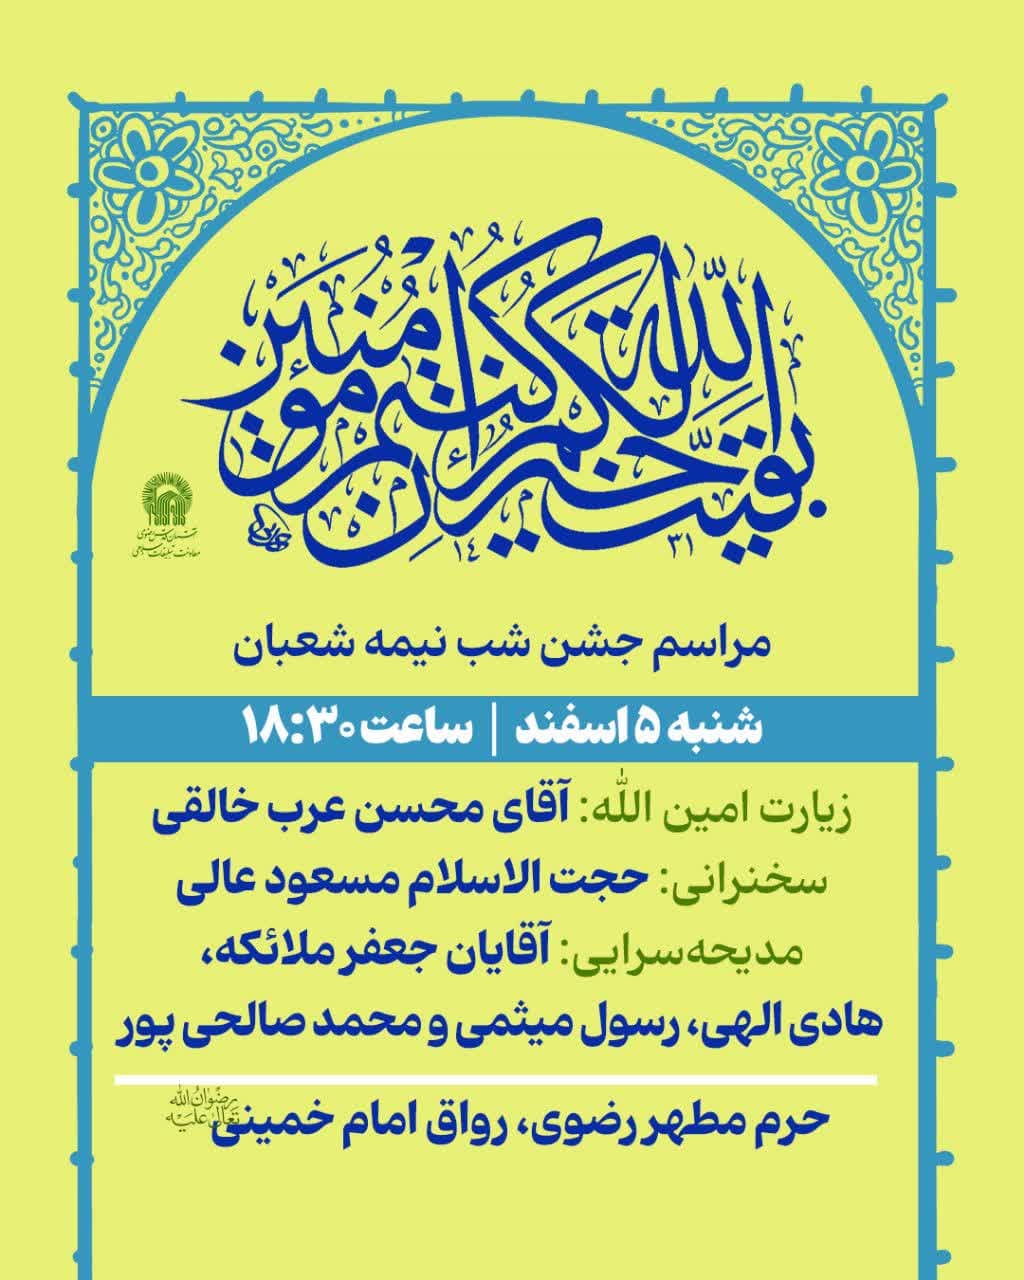 بقیت الله خیر لکم ان کنتم مؤمنین
۱۴ ۳۱
آستان قدس رضوی
معاونت تبلیغات اسلامی
مراسم جشن شب نیمه شعبان
شنبه ۵ اسفند | ساعت ۱۸:۳۰
زیارت امین الله: آقای محسن عرب خالقی
سخنرانی: حجت الاسلام مسعود عالی
مدیحه‌سرایی: آقایان جعفر ملائکه،
هادی الهی، رسول میثمی و محمد صالحی پور
حرم مطهر رضوی، رواق امام خمینی رضوان الله تعالی علیه